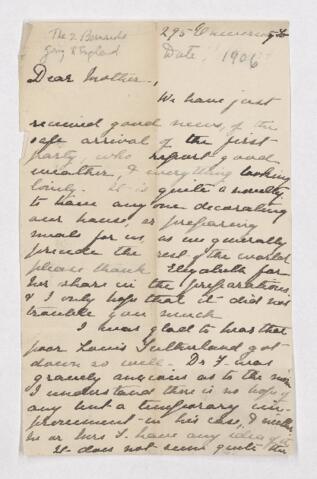 The 2 Bernards
going to England
295
Date, 1906
Dear Mother,
We have just
received good news, of the
safe arrival of the first
party, who report good
weather, & everything looking
lovely. It is quite a novelty
to have any one decorating
our house, or preparing
meals for us, as we generally
precede the rest of the world
please thank Elizabeth for
her share in the preparations,
& I only hope that it did not
trouble you much
I was glad to hear that
poor Louis Sutherland got
down so well. Dr F. was
gravely anxious as to the
I understand there is no hope of
any but a temporary im-
provement in his case,
he or Mrs F. have any idea of it
It does not seem quite the